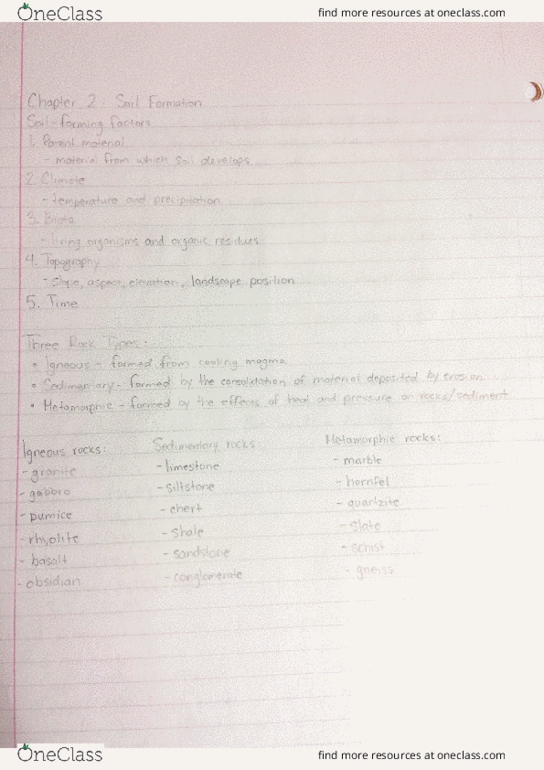 OneClass
find more resources at oneclass.com
Chapter 2: Soil Formation
Soil-forming factors
1. Parent material
- material from which soil develops
2. Climate
- temperature and precipitation
3. Biota
- living organisms and organic residues
4. Topography
- Slope, aspect, elevation, landscape position
5. Time
Three Rock Types:
• Igneous - formed from cooling magma
• Sedimentary - formed by the consolidation of material deposited by erosion
• Metamorphic - formed by the effects of heat and pressure on rocks/sediment
Igneous rocks:
- granite
- gabbro
- pumice
- rhyolite
- basalt
- obsidian
Sedimentary rocks:
- limestone
- siltstone
- chert
- Shale
- sandstone
- conglomerate
Metamorphic rocks:
- marble
- hornfel
- quartzite
- Slate
- schist
- gneiss
OneClass
find more resources at oneclass.com